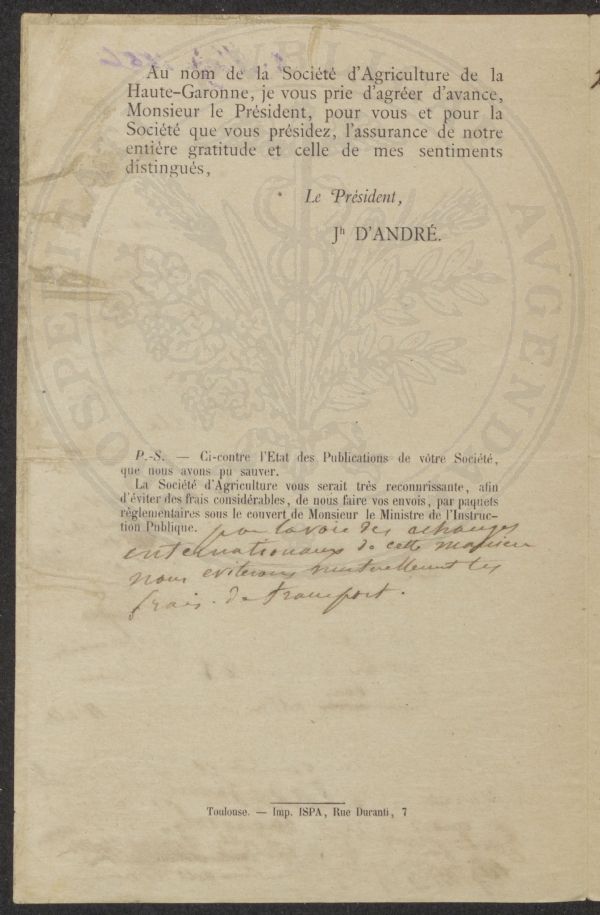 Au nom de la Société d'Agriculture de la
Haute-Garonne, je vous prie d'agréer d'avance,
Monsieur le Président, pour vous et pour la
Société que vous présidez, l'assurance de notre
entière gratitude et celle de mes sentiments
distingués,
Le Président,
Jh D'ANDRÉ.
P.-S. — Ci-contre l'Etat des Publications de vôtre Société,
que nous avons pu sauver.
La Société d'Agriculture vous serait très reconnrissante, afin
d'éviter des frais considérables, de nous faire vos envois, par paquets
règlementaires sous le couvert de Monsieur le Ministre de l'Instruc-
tion Publique. par la voie des echanges
internationaux de cette manière
nous eviterons mutuellement les
frais de transport.
Toulouse. — Imp. ISPA, Rue Duranti, 7